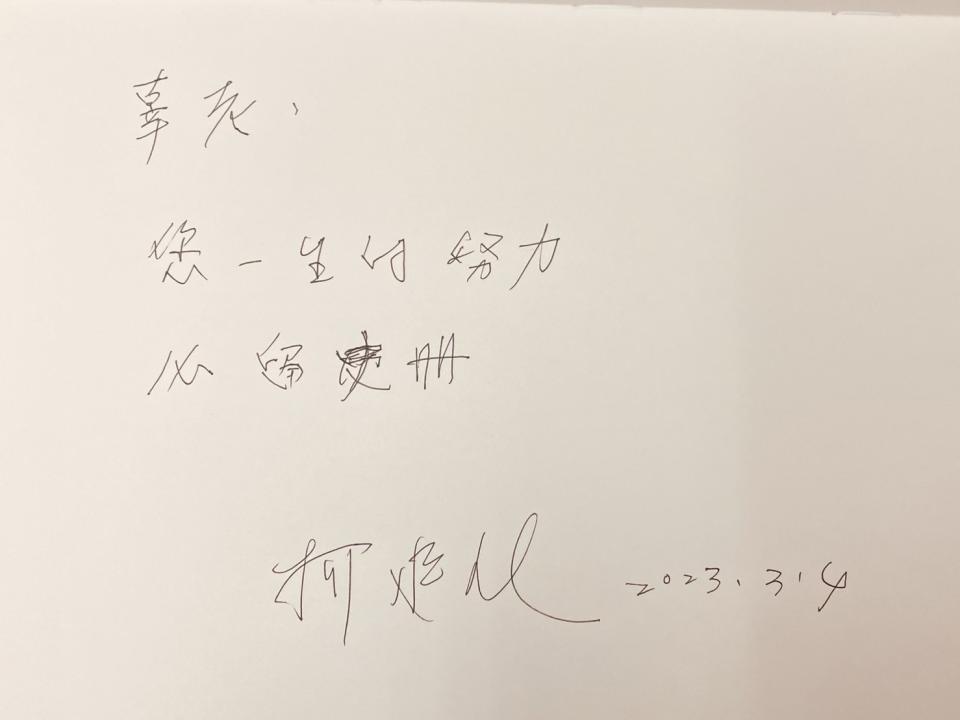 辜老、
您一生的努力
必留史冊
柯 2023.3.4